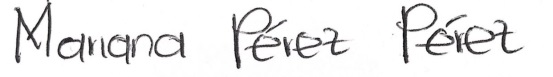 Mariana Pérez Pérez